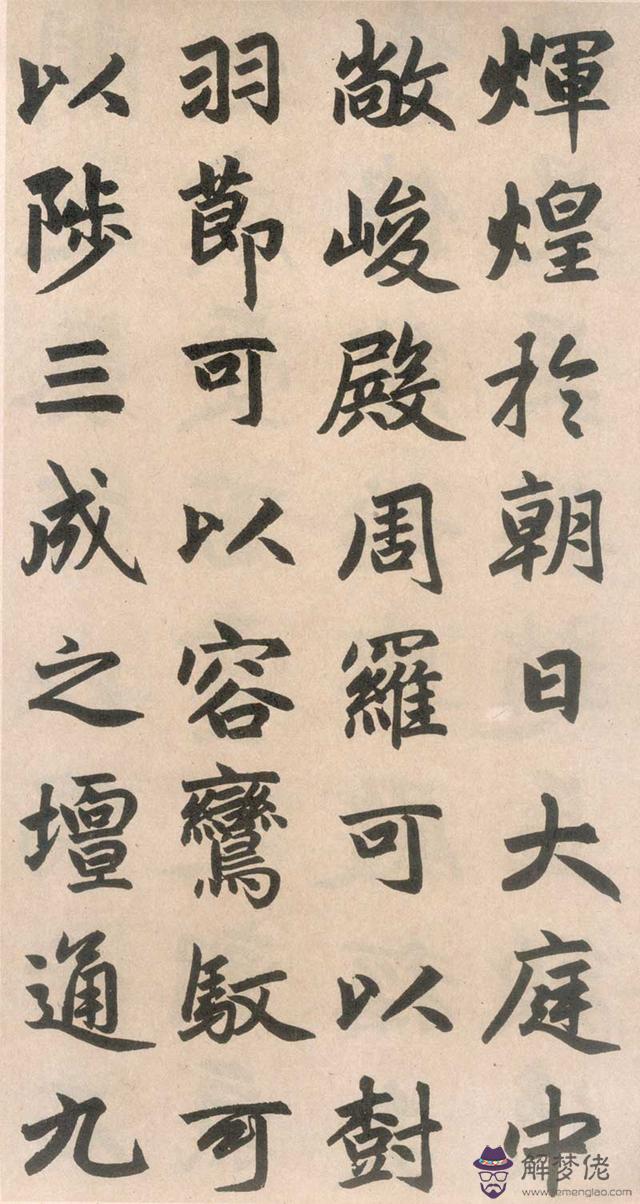 煇煌於朝日大庭中
敞峻殿周羅可以樹
羽節可以容鸞馭可
以陟三成之壇通九
解梦佬
www.jiemenglao.com